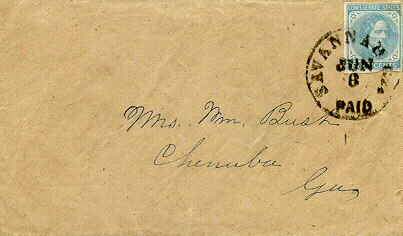 CONFEDERATE STATES
CENTS
SAVANNAH
JUN
8
PAID
Mrs. Wm. Bush
Chenuba
Ga.